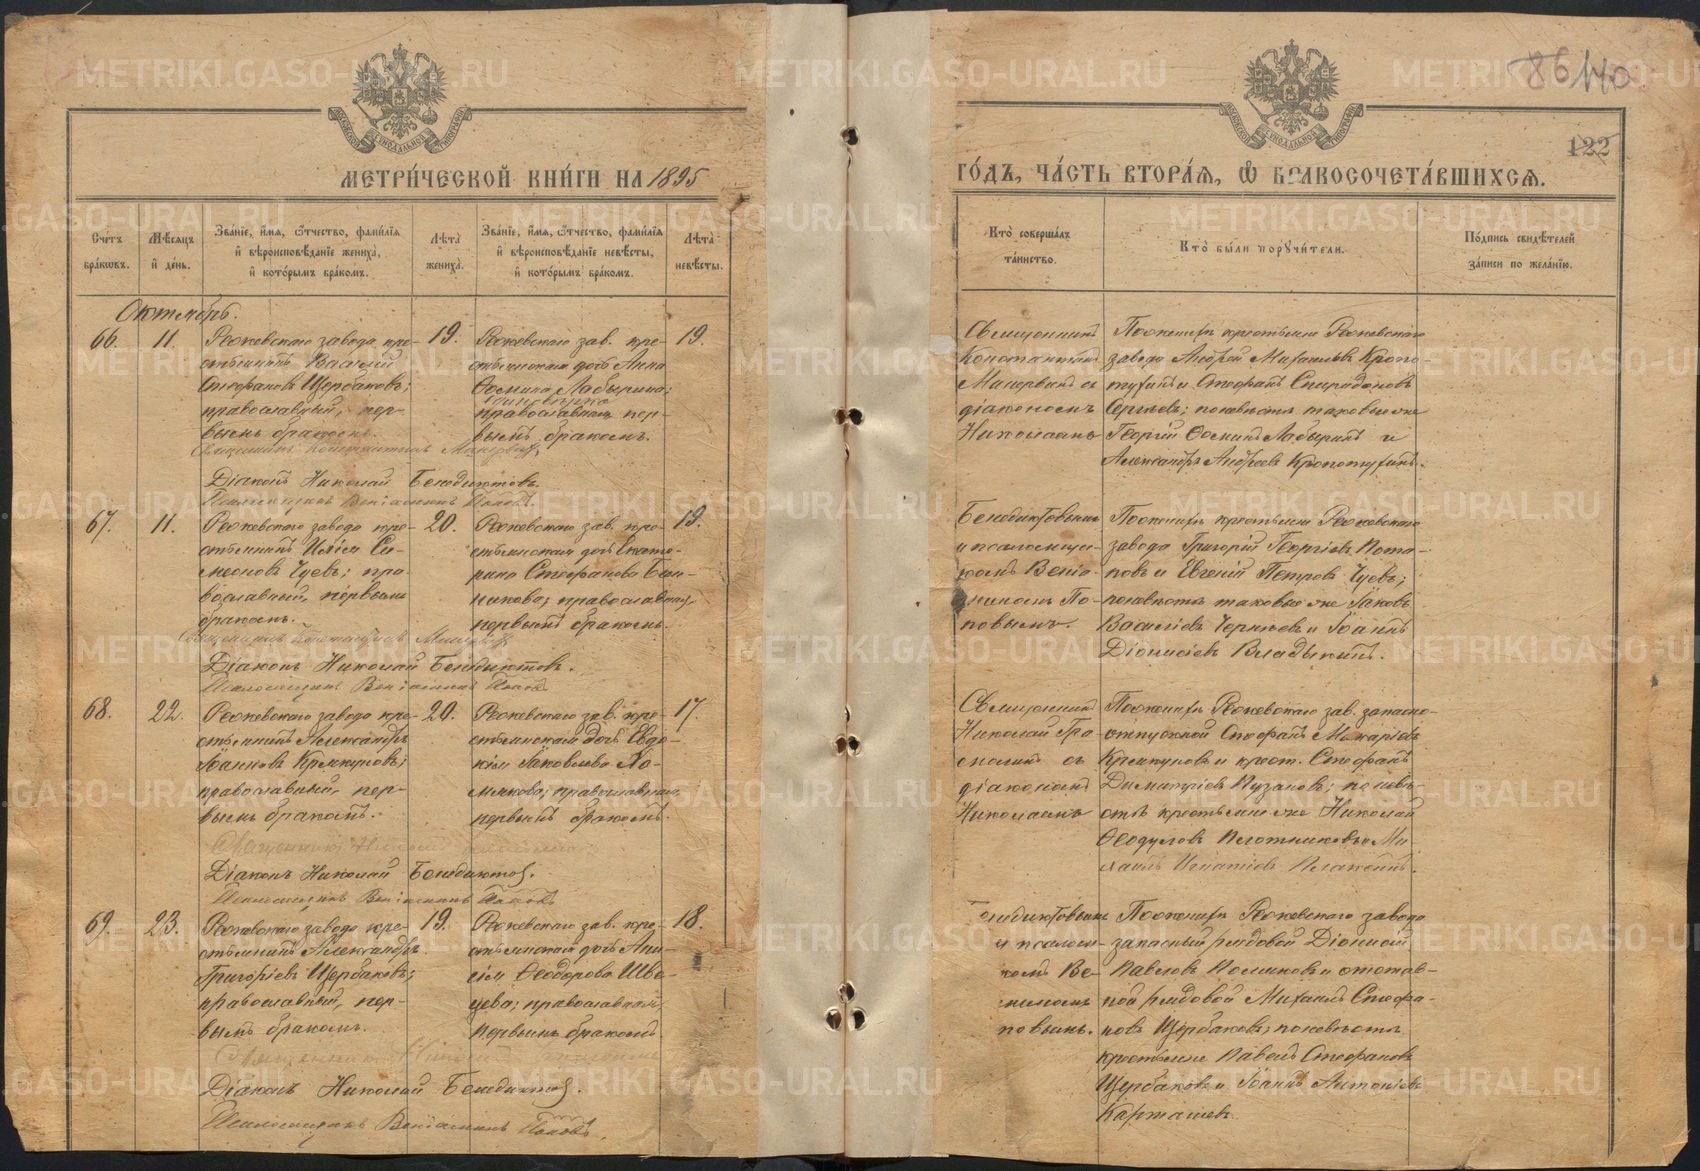 МЕТРИ́ЧЕСКОЙ КНИ́ГИ НА 1895
ГО́ДЪ, ЧА́СТЬ ВТОРА́Я, Ѡ БРАКОСОЧЕТА́ВШИХСЯ.
86 140
122
Сче́тъ бра́ковъ.
Мѣ́сяцъ и҆ де́нь.
Зва́нїе, и҆́мя, ѻ҆́тчество, фами́лїя и҆ вѣроисповѣ́данїе жениха̀, и҆ кото́рымъ бра́комъ.
Лѣ́та жениха̀.
Зва́нїе, и҆́мя, ѻ҆́тчество, фами́лїя и҆ вѣроисповѣ́данїе невѣ́сты, и҆ кото́рымъ бра́комъ.
Лѣ́та невѣ́сты.
Кто̀ соверша́лъ та́инство.
Кто̀ бы́ли поручи́тели.
По́дпись свидѣ́телей за́писи по жела́нїю.
Октябрь.
66.
11.
Режевскаго завода кре-
стьянинъ Василій
Стефановъ Щербаковъ;
православный, пер-
вымъ бракомъ.
19.
Режевскаго зав. кре-
стьянская дочь Анна
Ѳомина Лабырина;
единовѣрка
православная, пер-
вымъ бракомъ.
19.
Священникъ
Константинъ
съ
діакономъ
Николаемъ
По женихѣ крестьяне Режевскаго
завода Андрей Михаиловъ Кропо-
тухинъ и Стефанъ Спиридоновъ
Сергѣевъ; по невѣстѣ таковые же
Георгій Ѳоминъ Лабыринъ и
Александръ Андреевъ Кропотухинъ.
Священникъ Константинъ
Діаконъ Николай Бенедиктовъ.
Псаломщикъ Веніаминъ Поповъ
67.
11.
Режевскаго завода кре-
стьянинъ Илія Си-
меоновъ Чуевъ; пра-
вославный, первымъ
бракомъ.
20.
Режевскаго зав. кре-
стьянская дочь Екате-
рина Стефанова Бан-
никова; православная,
первымъ бракомъ.
19.
Бенедиктовымъ
и псаломщи-
комъ Веніа-
миномъ По-
повымъ.
По женихѣ крестьяне Режевскаго
завода Григорій Георгіевъ Пота-
повъ и Евгеній Петровъ Чуевъ;
по невѣстѣ таковые же Іаковъ
Василіевъ Черняевъ и Іоаннъ
Діонисіевъ Владыкинъ.
Священникъ Константинъ
Діаконъ Николай Бенедиктовъ.
Псаломщикъ Веніаминъ Поповъ
68.
22.
Режевскаго завода кре-
стьянинъ Александръ
Іоанновъ Крякуновъ;
православный, пер-
вымъ бракомъ.
20.
Режевскаго зав. кре-
стьянская дочь Евдо-
кія Іаковлева Хо-
мякова; православная,
первымъ бракомъ.
17.
Священникъ
Николай
съ
діакономъ
Николаемъ
По женихѣ Режевскаго зав. запасно-
отпускной Стефанъ Макаріевъ
Крякуновъ и крест. Стефанъ
Димитріевъ Пузановъ; по невѣ-
стѣ крестьяне же Николай
Ѳеодуловъ Плотниковъ и Ми-
хаилъ Игнатіевъ
Священникъ Николай
Діаконъ Николай Бенедиктовъ.
Псаломщикъ Веніаминъ Поповъ
69.
23.
Режевскаго завода кре-
стьянинъ Александръ
Григоріевъ Щербаковъ;
православный, пер-
вымъ бракомъ.
19.
Режевскаго зав. кре-
стьянская дочь Ани-
сія Ѳеодорова Шве-
цова; православная,
первымъ бракомъ.
18.
Бенедиктовымъ
и псалом-
комъ Ве-
миномъ
повымъ.
По женихѣ Режевскаго завода
запасный рядовой Діонисій
Павловъ Поляковъ и отстав-
ной рядовой Михаилъ Стефа-
новъ Щербаковъ; по невѣстѣ
крестьяне Павелъ Стефановъ
Щербаковъ и Іоаннъ Антоніевъ
Карташевъ.
Священникъ
Діаконъ Николай Бенедиктовъ.
Псаломщикъ Веніаминъ Поповъ.
METRIKI.GASO-URAL.RU